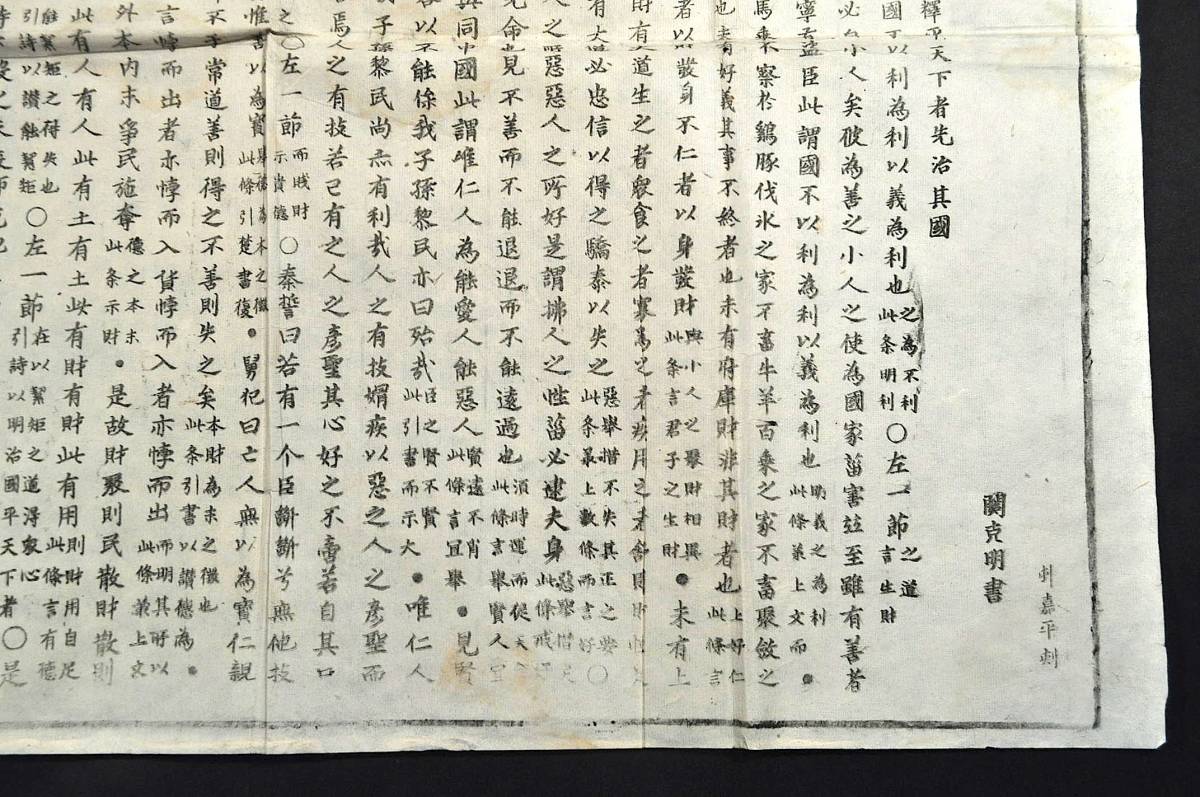 能絜矩之得失也
引詩以讚能絜矩
○左一節
引詩以明治國平天下者
在以絜矩之道得衆心
○是
此有人有人此有土有土此有財有財此有用
此條言有德
則財用自足
外本內末爭民施奪
此条示財
德之本末
●是故財聚則民散財散則
言悖而出者亦悖而入貨悖而入者亦悖而出
此條兼上文
而明其所以
不于常道善則得之不善則失之矣
此条引書以讚德為
本財為末之徵也
●
惟善以為寶
此條引楚書復
舉德為本之徵
●舅犯曰亡人無以為寶仁親
之○左一節
示貴德
而賤財
○秦誓曰若有一个臣斷斷兮無他技
焉人之有技若己有之人之彥聖其心好之不啻若自其口
子孫黎民尚亦有利哉人之有技媢疾以惡之人之彥聖而
以不能保我子孫黎民亦曰殆哉
此引書而示大
臣之賢不賢
●唯仁人
與同中國此謂唯仁人為能愛人能惡人
此條言宜舉
賢遠不肖
●見賢
命也見不善而不能退退而不能遠過也
此條言舉賢人宜
須時運而從天
人之所惡惡人之所好是謂拂人之性菑必逮夫身
此條戒好
惡舉措反
有大道必忠信以得之驕泰以失之
此条最上數條而言好
惡舉措不失其正之弊
○
財有大道生之者衆食之者寡為之者疾用之者舒則財恒足
者以發身不仁者以身發財
此条言君子之生財
與小人之聚財相異
●未有上
也未有好義其事不終者也未有府庫財非其財者也
此條言
上好仁
馬乘察於鷄豚伐氷之家不畜牛羊百乘之家不畜聚斂之
寧有盜臣此謂國不以利為利以義為利也
此條兼上文而
明義之為利
●
必自小人矣彼為善之小人之使為國家菑害竝至雖有善者
國不以利為利以義為利也
此条明利
之為不利
○左一節
言生財
之道
釋平天下者先治其國
關克明書
嘉平刻